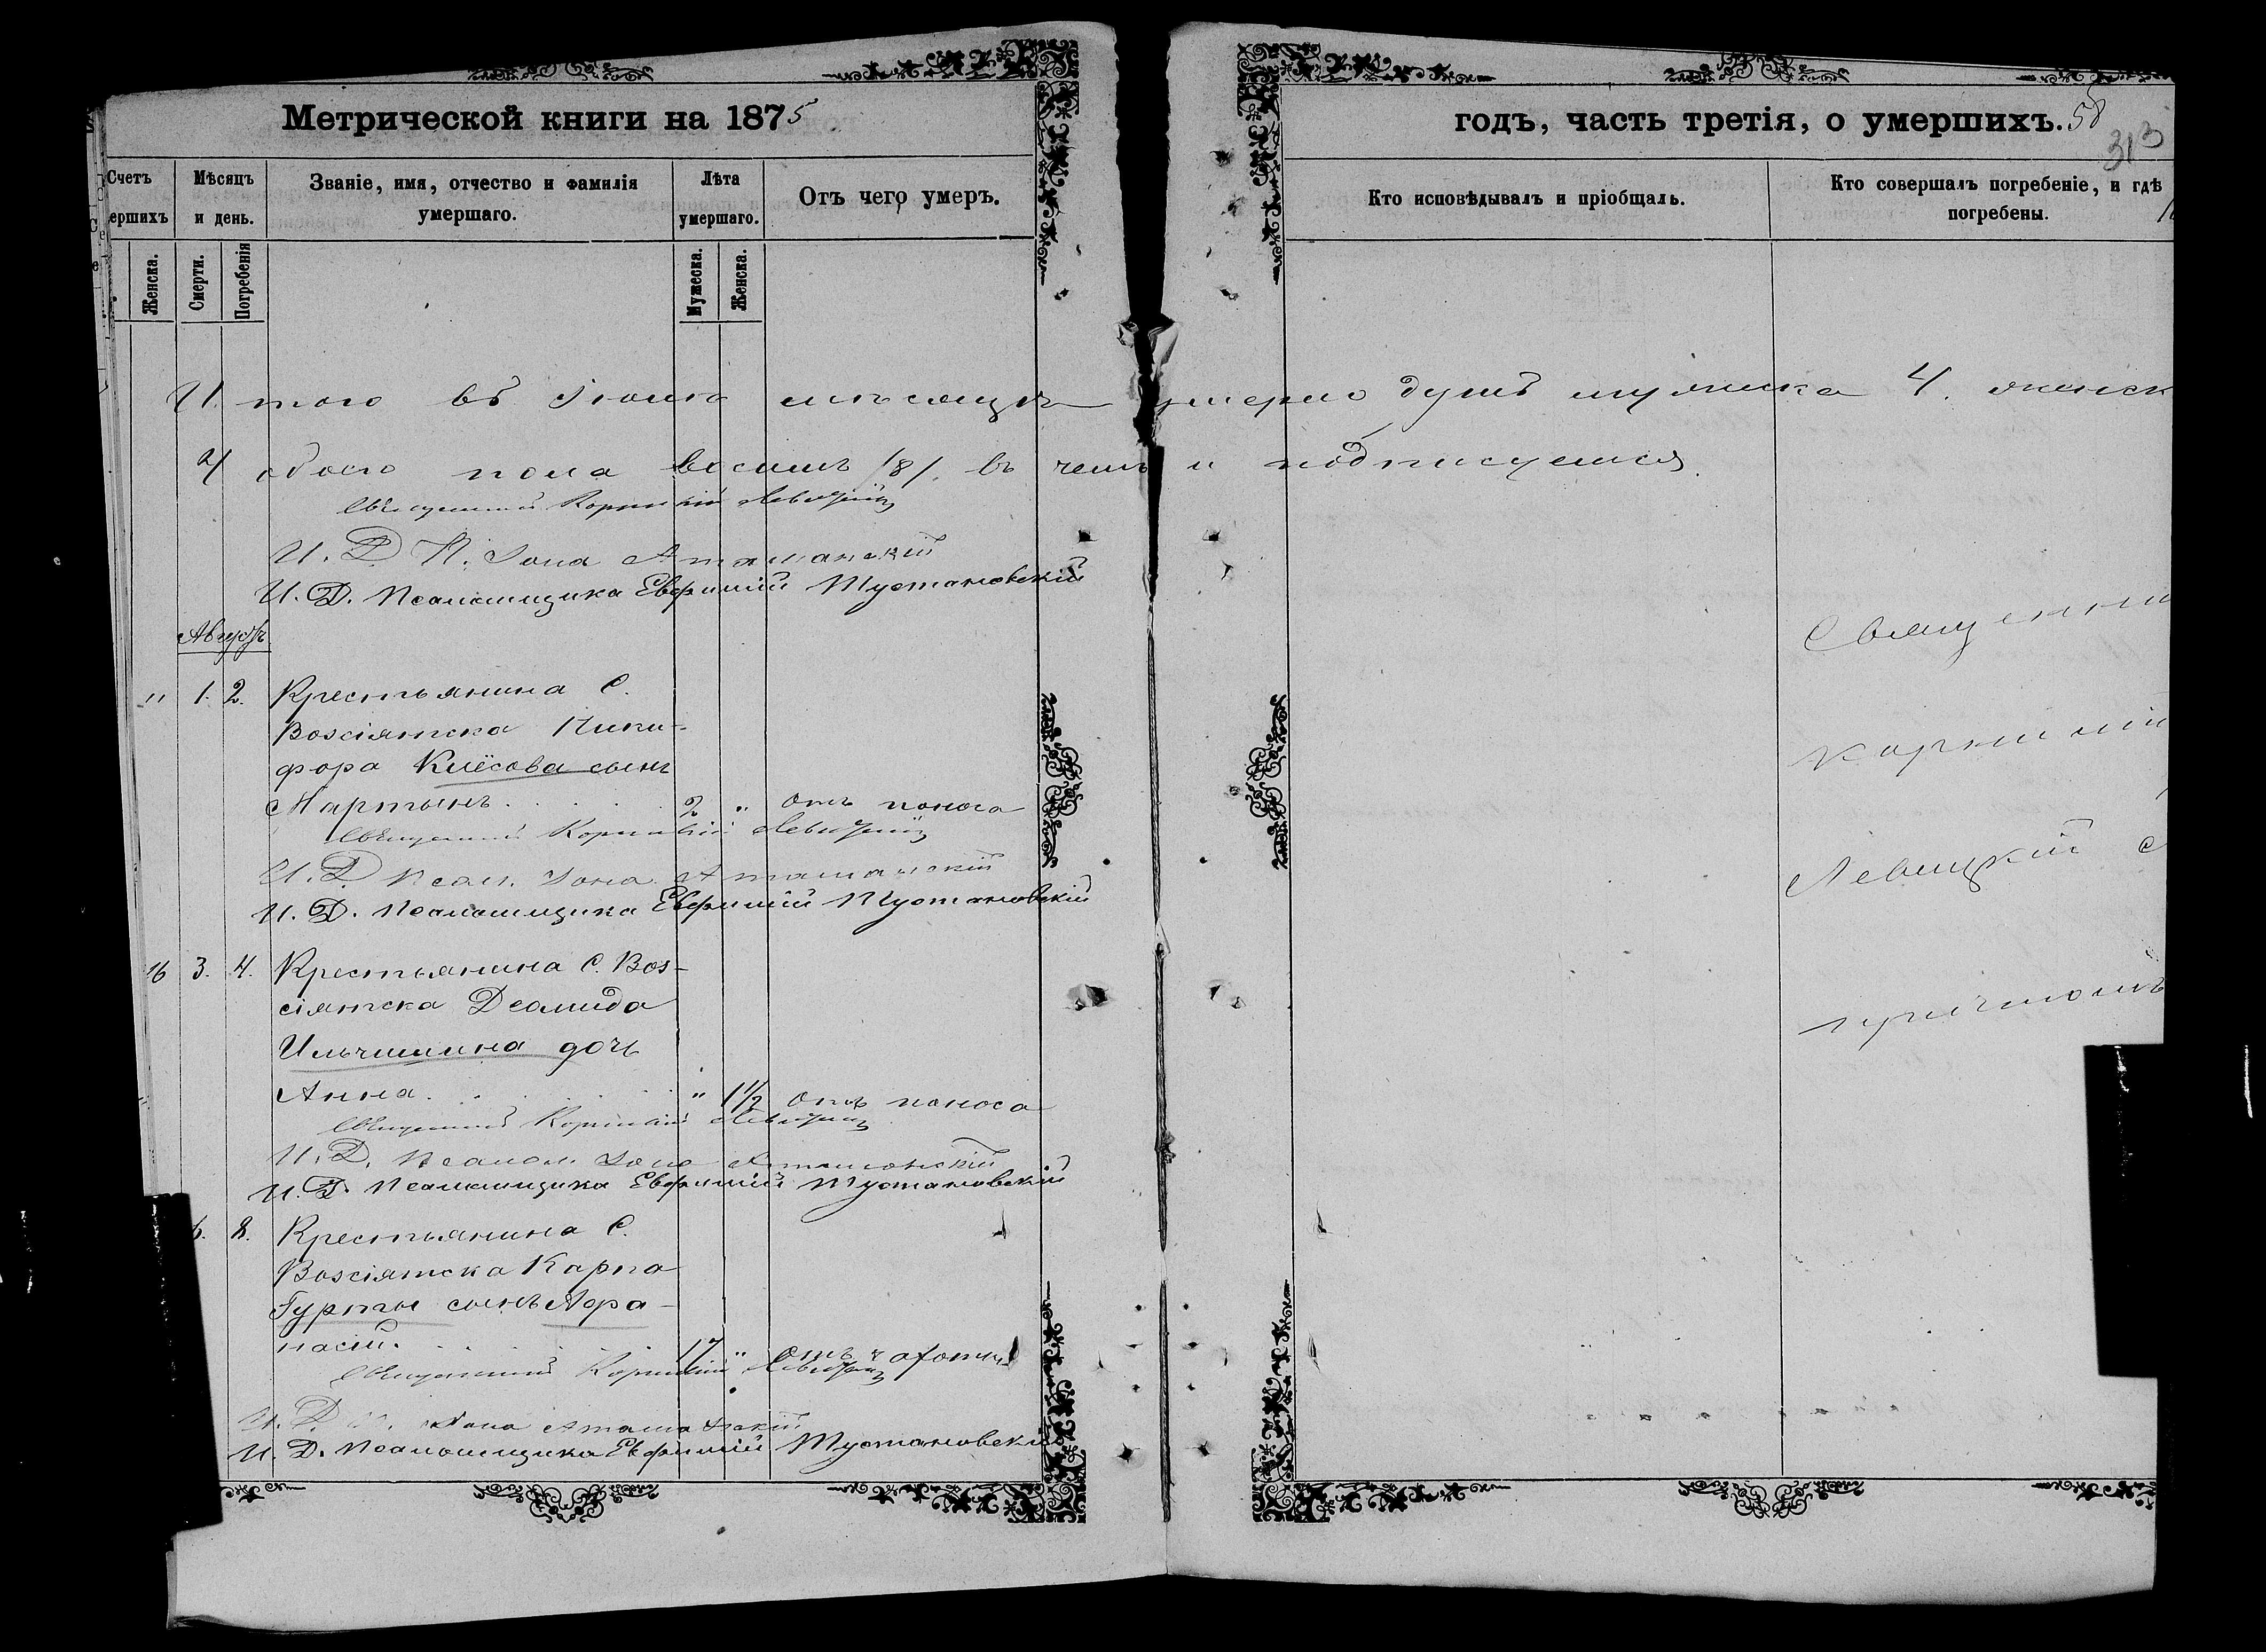 Метрической книги на 1875
годъ, часть третія, о умершихъ. 58
313
Счетъ
ершихъ
Мѣсяцъ
и день.
Званіе, имя, отчество и фамилія
умершаго.
Лѣта
умершаго.
Отъ чего умеръ.
Кто исповѣдывалъ и пріобщалъ.
Кто совершалъ погребеніе, и гдѣ
погребены.
Женска.
Смерти.
Погребенія
Мужеска.
Женска.
И того въ мѣсяцѣ умерло душъ мужеска 4. женск
4 обоего пола восемь /8/. въ чемъ и подписуемся.
Священникъ Корнилій Левицкій
И. Д. П. Іона Атаманскій
И. Д. Псаломщика Евфимій Тустановскій
Августъ
" 1. 2. Крестьянина С.
Возсіятска Ники-
фора сынъ
Мартынъ . . . 2 " отъ поноса
Священникъ Корнилій Левицкій
И. Д. Псал. Іона Атаманскій
И. Д. Псаломщика Евфимій Тустановскій
16 3. 4. Крестьянина С. Воз-
сіятска Деомида
Ильчишина дочь
Анна . . . " 1 1/2 отъ поноса
Священникъ Корнилій Левицкій
И. Д. Псалом. Іона Атаманскій
И. Д. Псаломщика Евфимій Тустановскій
6. 8. Крестьянина С.
Возсіятска Карпа
Гурты сынъ Афа-
насій. . . . 17 " отъ чахотки
Священникъ Корнилій Левицкій
И. Д. П. Іона Атаманскій
И. Д. Псаломщика Евфимій Тустановскій
Священни
Корнилій
Левицкій с
причтомъ